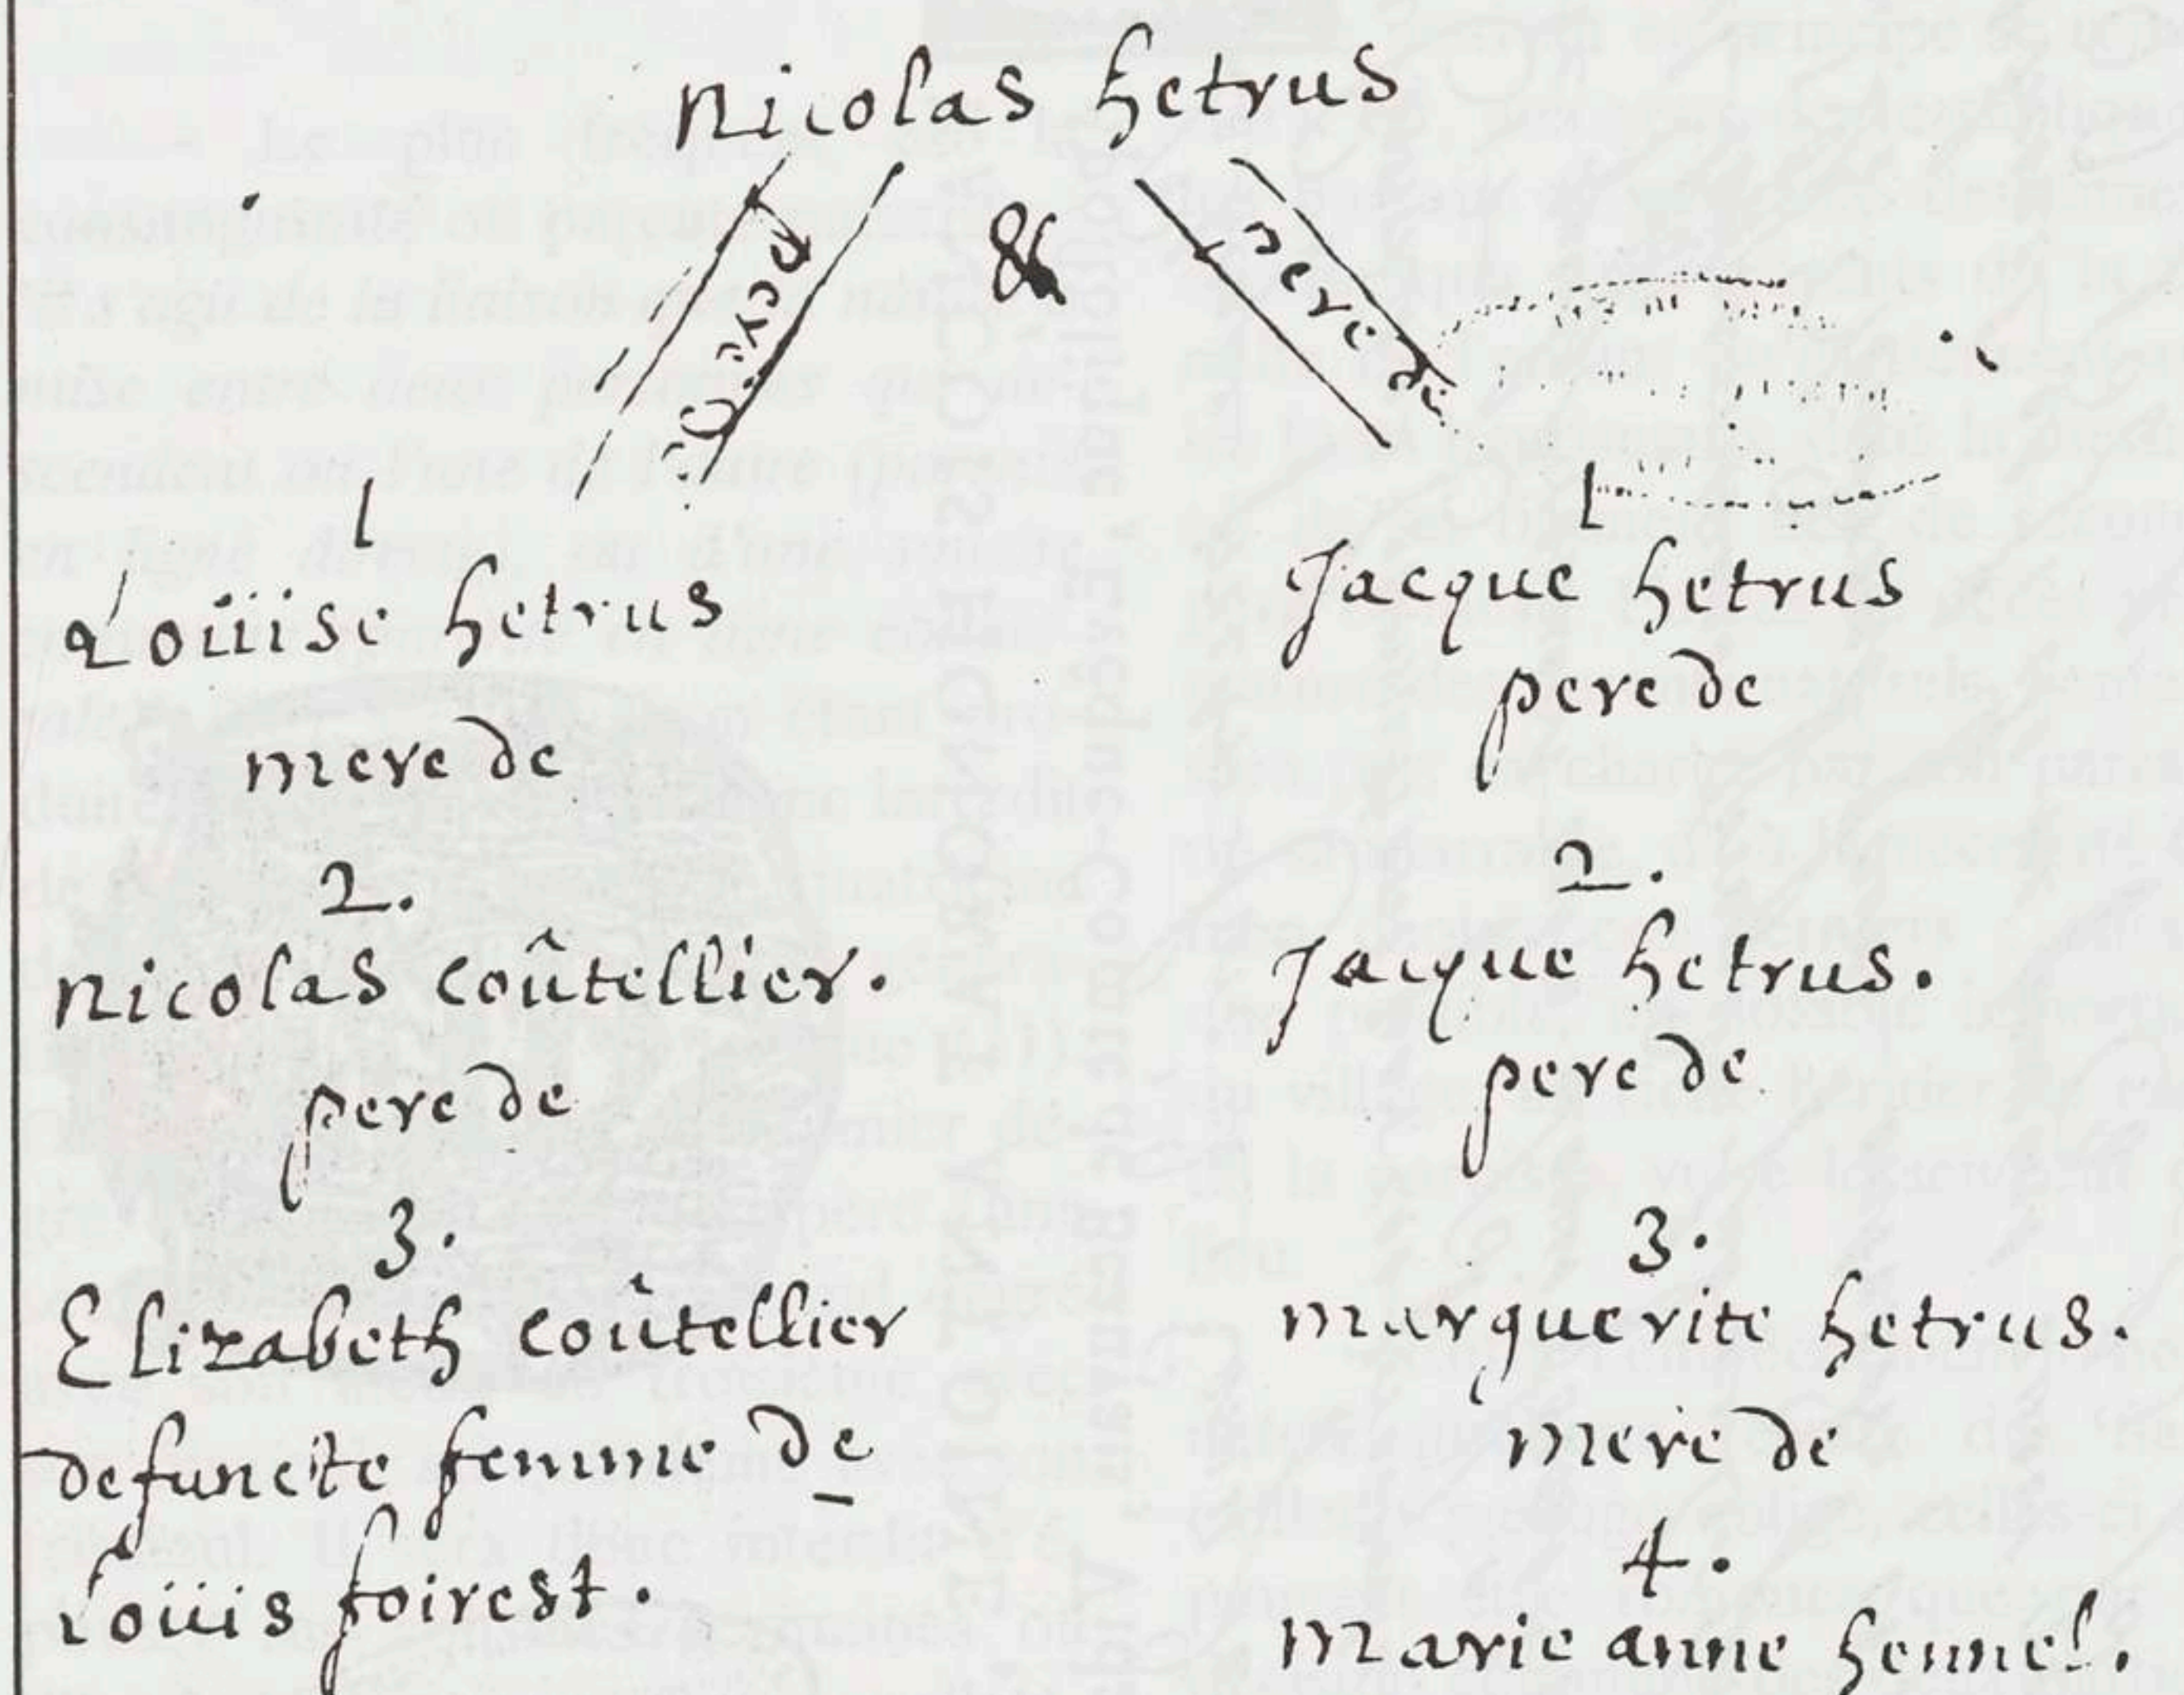 nicolas hetrus
pere de
&
pere de
1
Loüise hetrus
mere de
2.
nicolas coûtellier.
pere de
3.
Elizabeth coûtellier
defuncte femme de
Loüis foirest.
1
Jacque hetrus
pere de
2.
Jacque hetrus.
pere de
3.
marguerite hetrus.
mere de
4.
marie anne hennel.